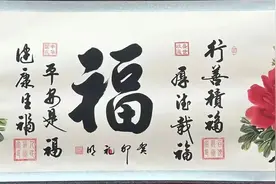 行善積福
厚德載福
福
平安是福
健康是福